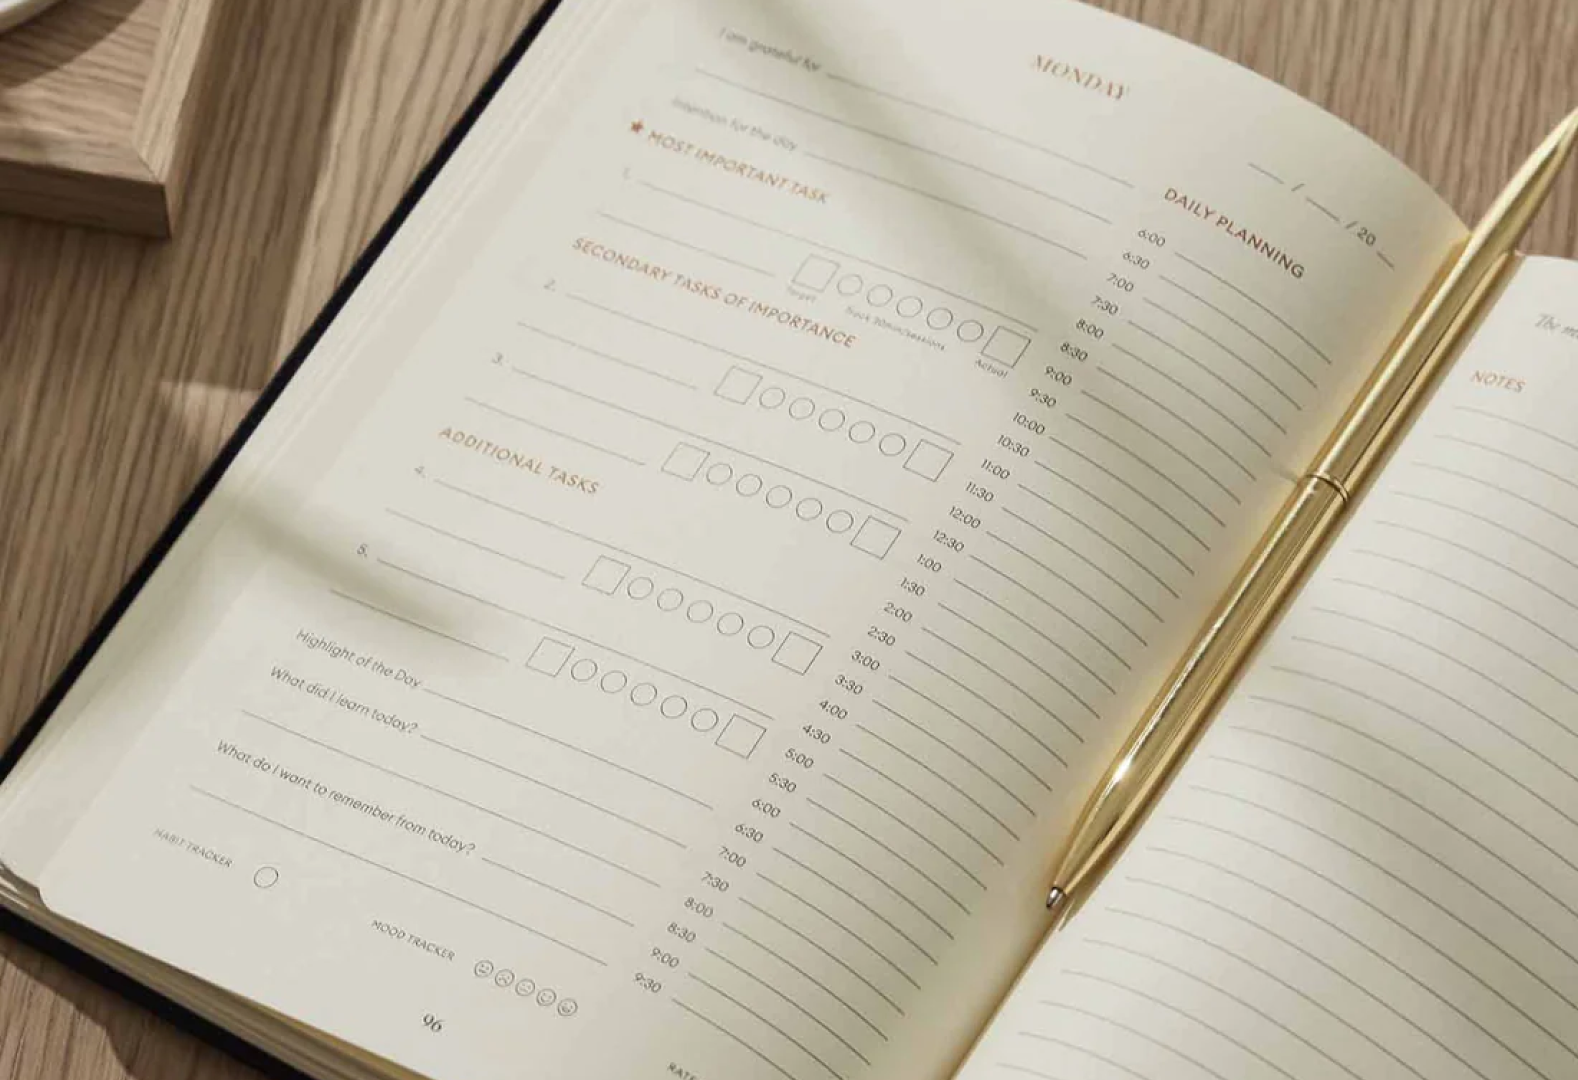 MONDAY
__ / __ / 20 __
I am grateful for
Intention for the day
★ MOST IMPORTANT TASK
1.
Target
Track 30min/sessions
Actual
SECONDARY TASKS OF IMPORTANCE
2.
3.
ADDITIONAL TASKS
4.
5.
Highlight of the Day
What did I learn today?
What do I want to remember from today?
HABIT TRACKER
MOOD TRACKER
96
DAILY PLANNING
6:00
6:30
7:00
7:30
8:00
8:30
9:00
9:30
10:00
10:30
11:00
11:30
12:00
12:30
1:00
1:30
2:00
2:30
3:00
3:30
4:00
4:30
5:00
5:30
6:00
6:30
7:00
7:30
8:00
8:30
9:00
9:30
The
NOTES